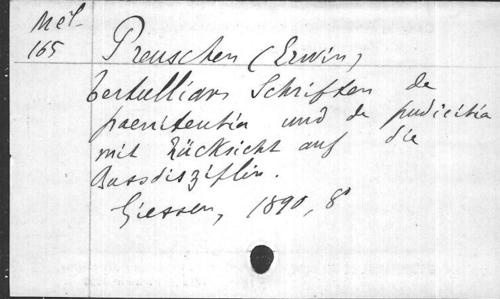 Mél.
165
Preuschen (Erwin)
Tertullians Schriften de
paenitentia und de pudicitia
mit Rücksicht auf die
Bussdisziplin.
Giessen, 1890, 8°